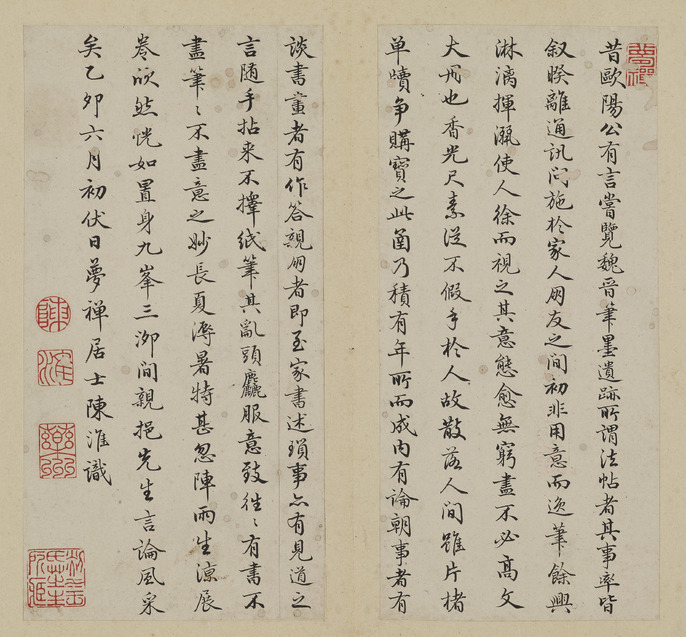 昔歐陽公有言嘗覽魏晉筆墨遺跡所謂法帖者其事率皆
叙睽離通訊問施於家人朋友之間初非用意而逸筆餘興
淋漓揮灑使人徐而視之其意態愈無窮盡不必高文
大冊也香光尺素從不假手於人故散落人間雖片楮
单牘争購寶之此箇乃積有年所而成内有論朝事者有
談書畫者有作答親朋者即至家書述瑣事亦有見道之
言随手拈来不擇紙筆其亂頭麤服意致往〻有書不
盡筆〻不盡意之妙長夏溽暑特甚忽陣雨生凉展
卷欣然恍如置身九峯三泖間親挹先生言論風采
矣乙卯六月初伏日夢禅居士陳淮識
陳
淮